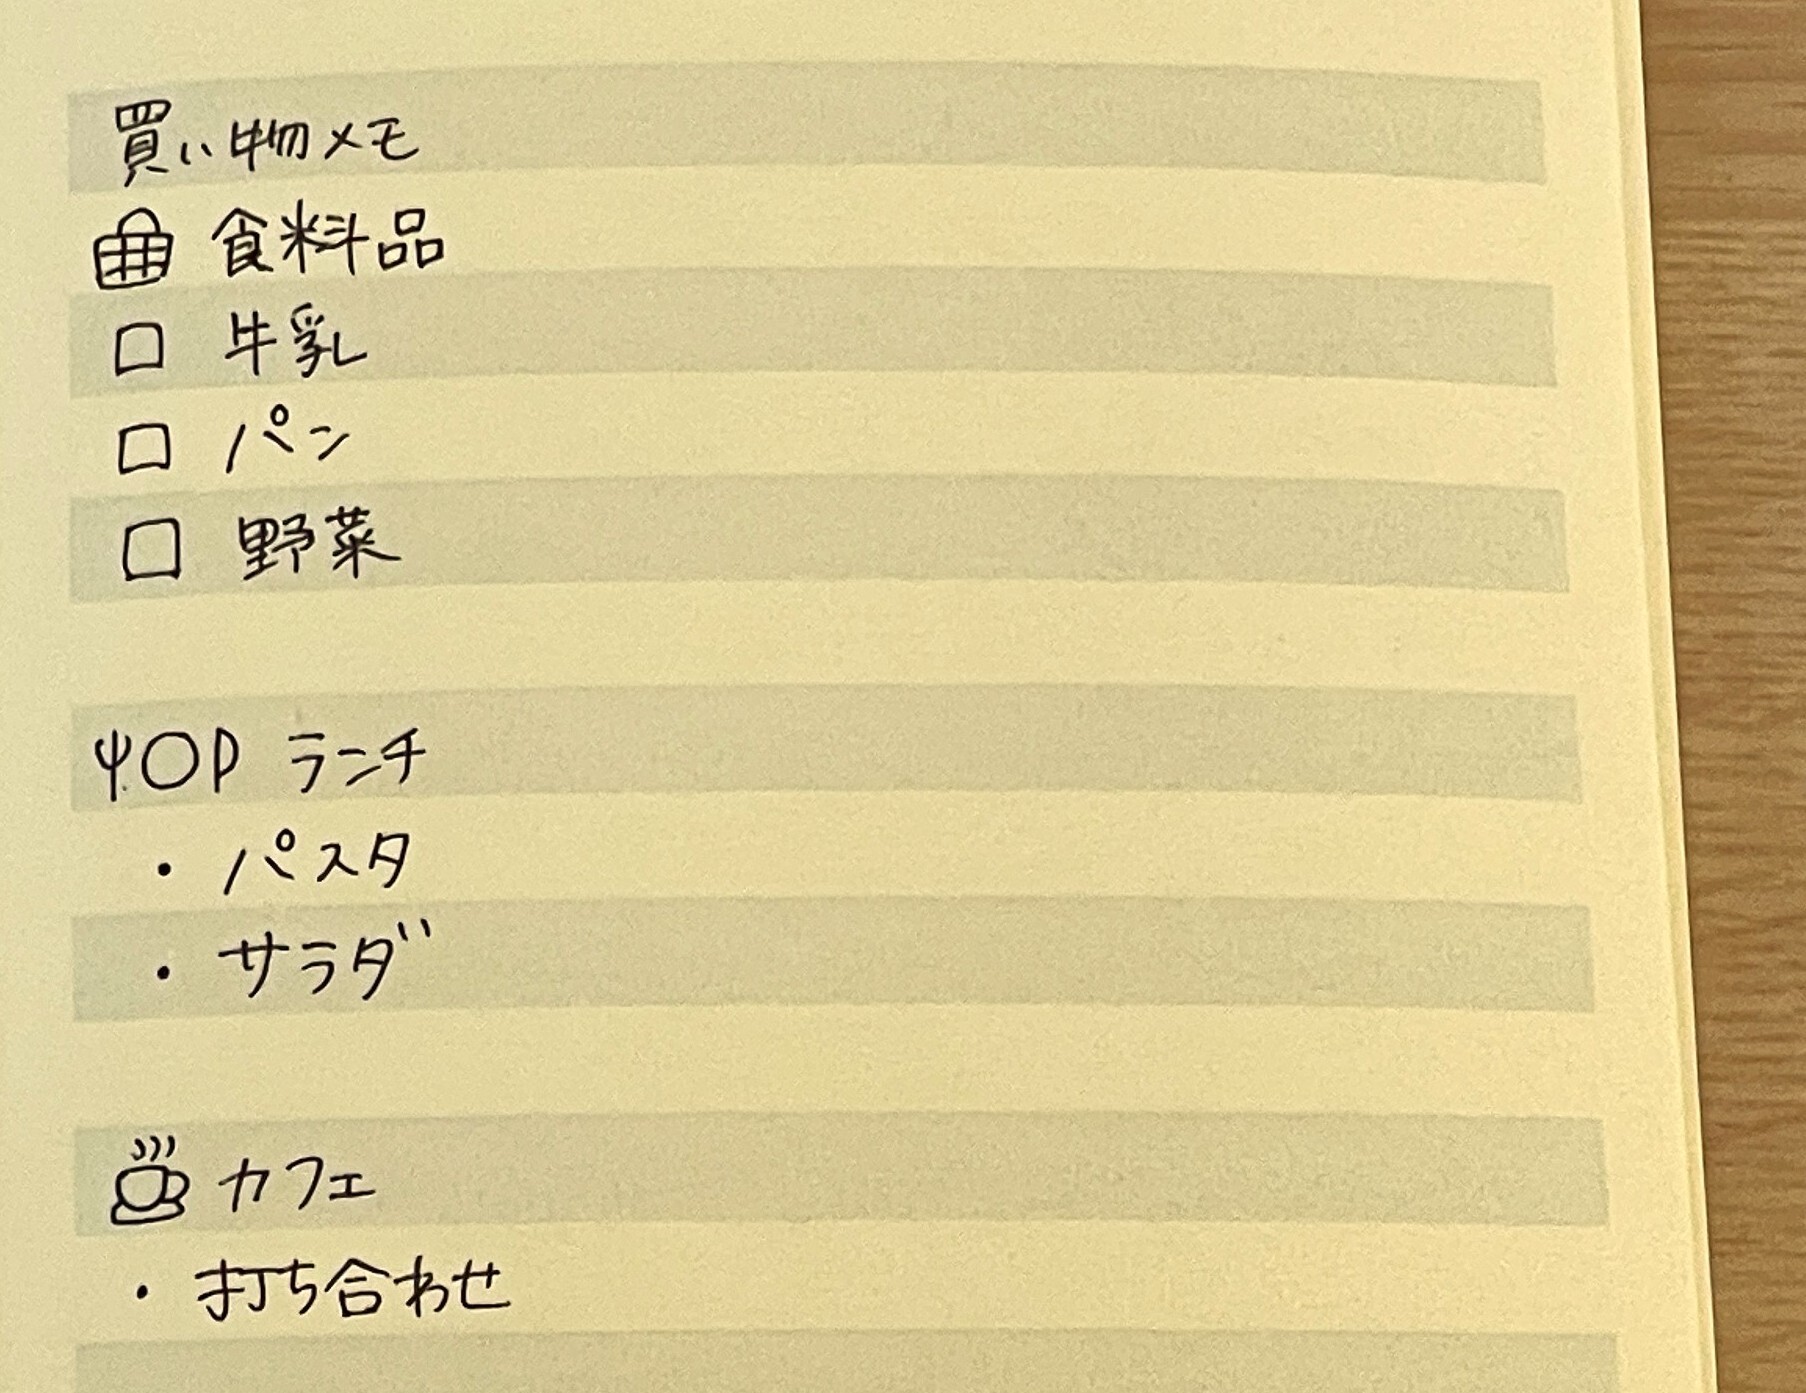 買い物メモ
食料品
□ 牛乳
□ パン
□ 野菜
ランチ
・パスタ
・サラダ
カフェ
・打ち合わせ